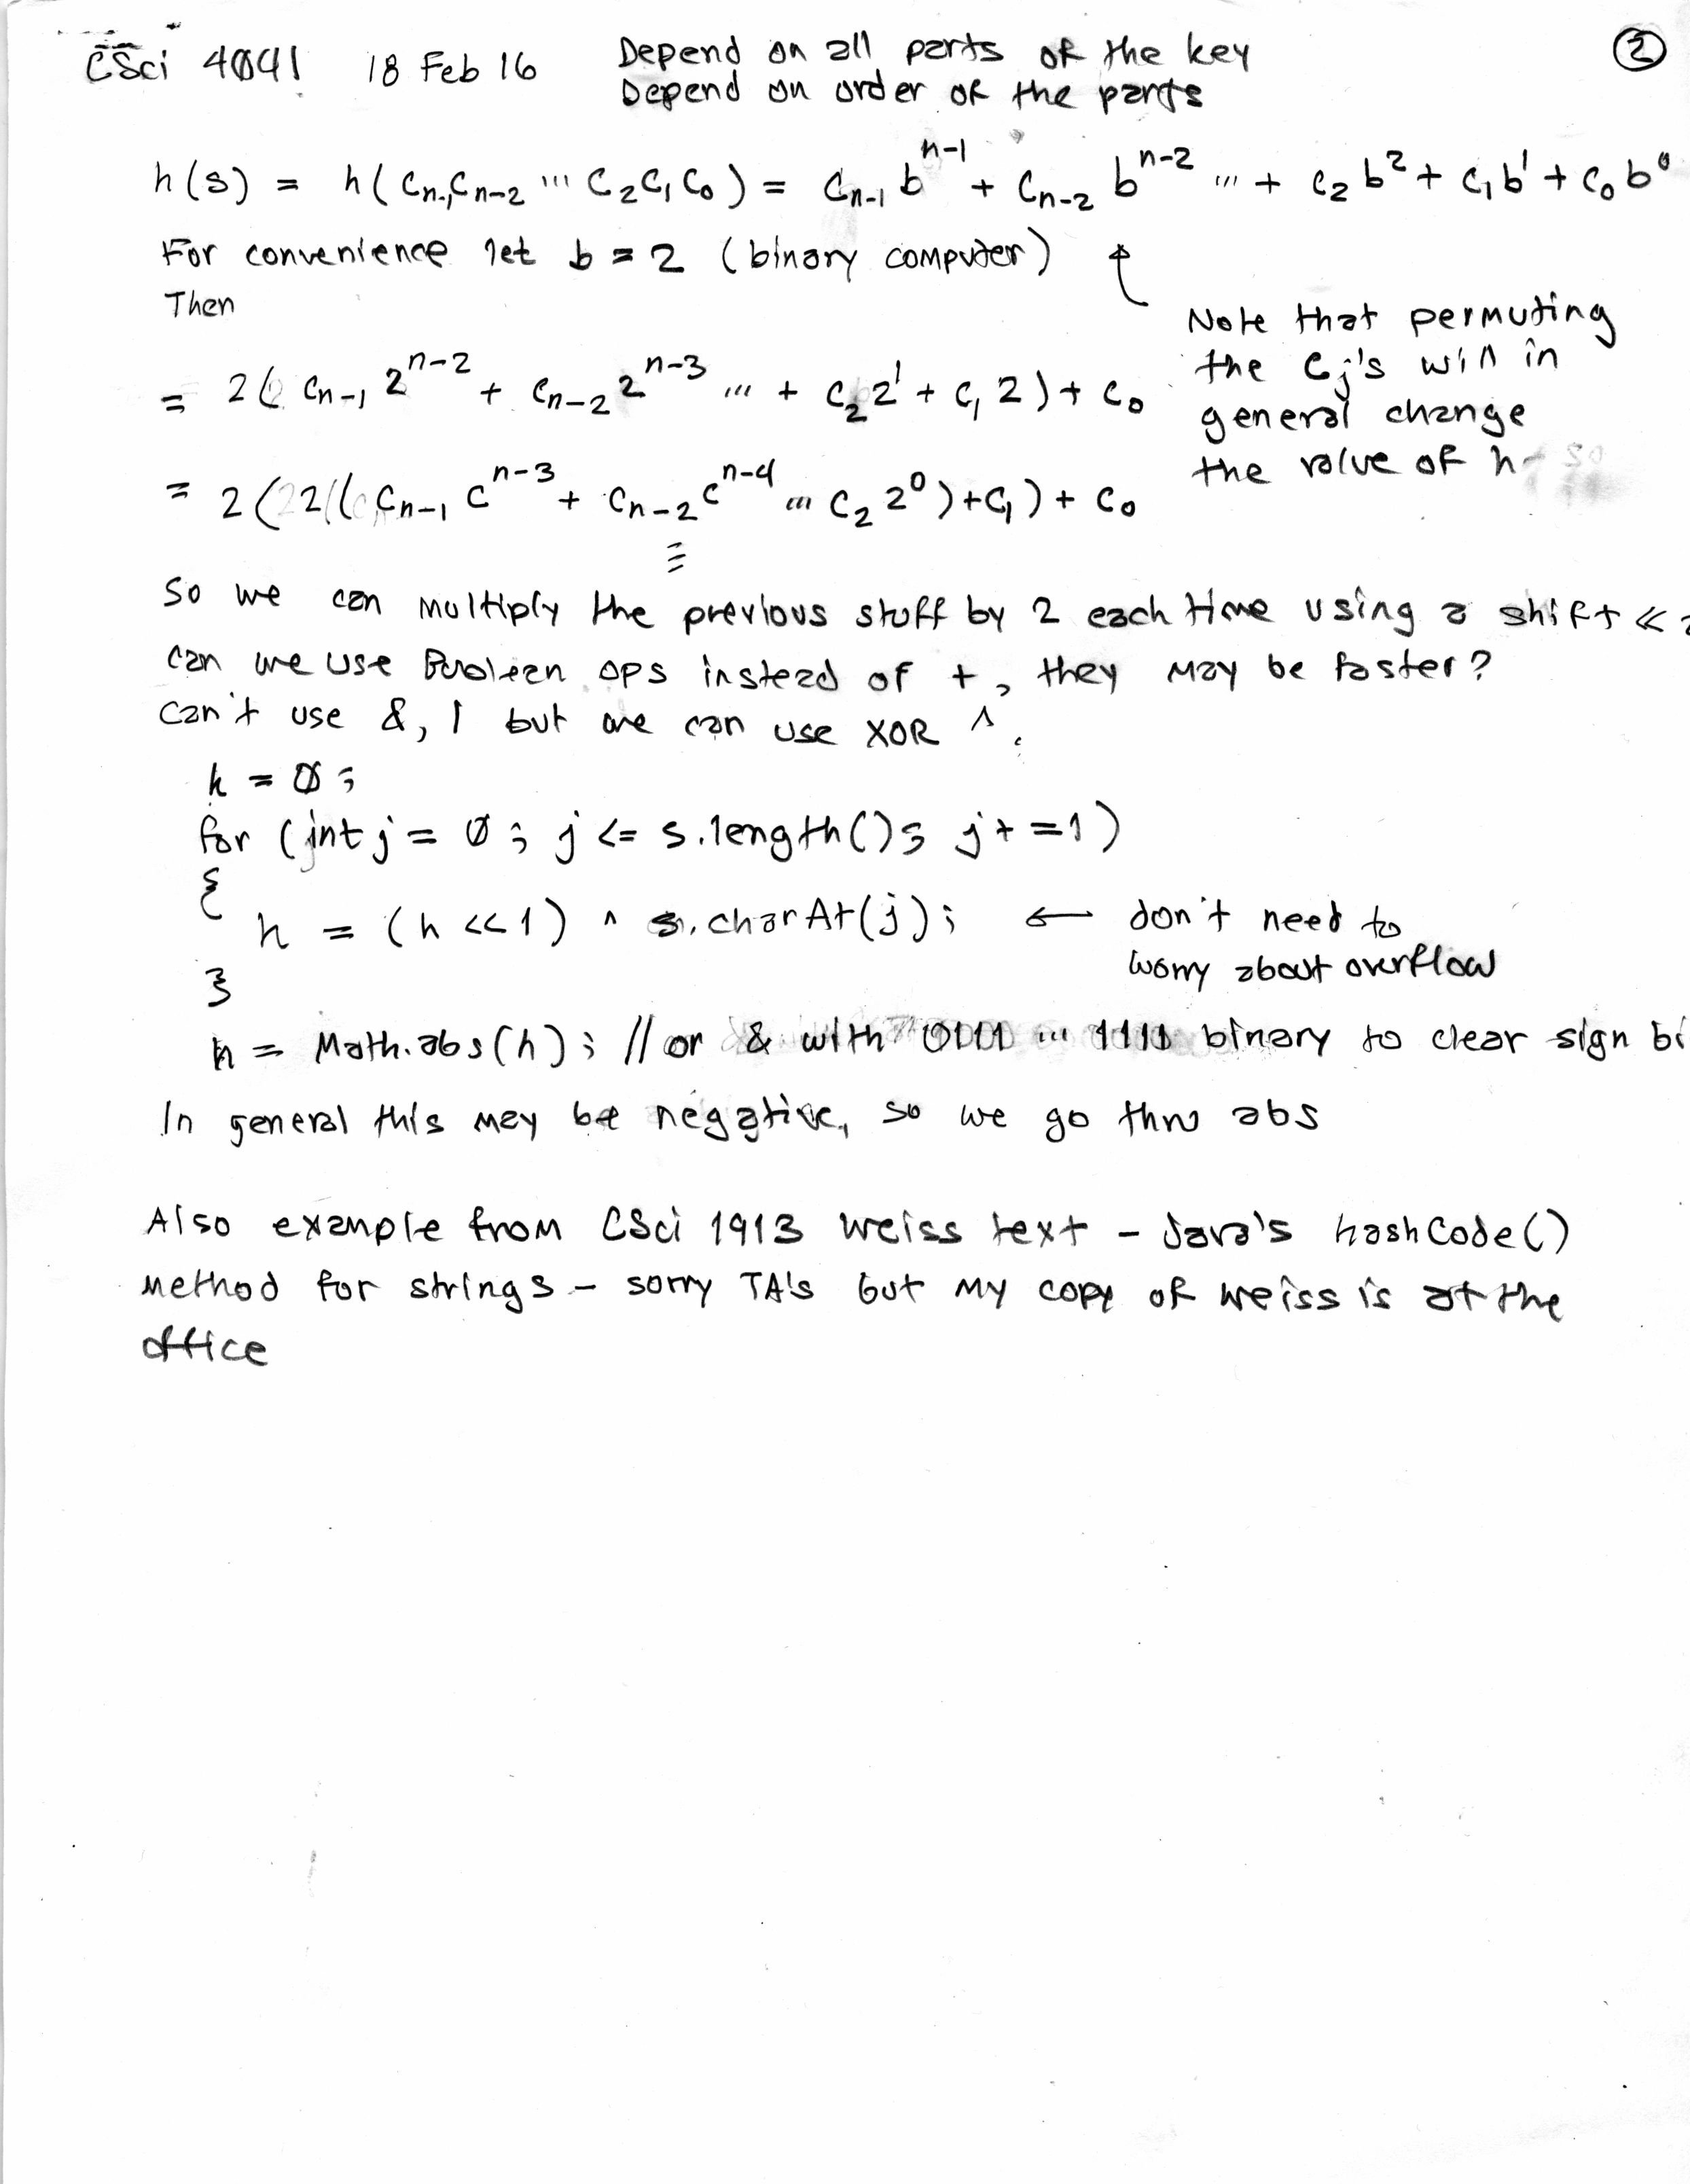 CSci 4041 18 Feb 16 Depend on all parts of the key ②
Depend on order of the parts
h(s) = h(Cn-1Cn-2 ... C2C1C0) = Cn-1 b^n-1 + Cn-2 b^n-2 ... + C2 b^2 + C1 b^1 + C0 b^0
For convenience let b = 2 (binary computer)
Then
Note that permuting
the Cj's will in
general change
the value of h
= 2( Cn-1 2^n-2 + Cn-2 2^n-3 ... + C2 2^1 + C1 2) + C0
= 2(2(( Cn-1 C^n-3 + Cn-2 C^n-4 ... C2 2^0)+C1) + C0
So we can multiply the previous stuff by 2 each time using a shift <<
can we use Boolean ops instead of +, they may be faster?
Can't use &, | but we can use XOR ^.
h = 0;
for (int j = 0; j <= s.length(); j+=1)
{
h = (h <<1) ^ s.charAt(j); ← don't need to
worry about overflow
}
h = Math.abs(h); // or & with 0111 ... 1111 binary to clear sign bi
In general this may be negative, so we go thru abs
Also example from CSci 1913 Weiss text - Java's hashCode()
method for strings - sorry TA's but my copy of Weiss is at the
office